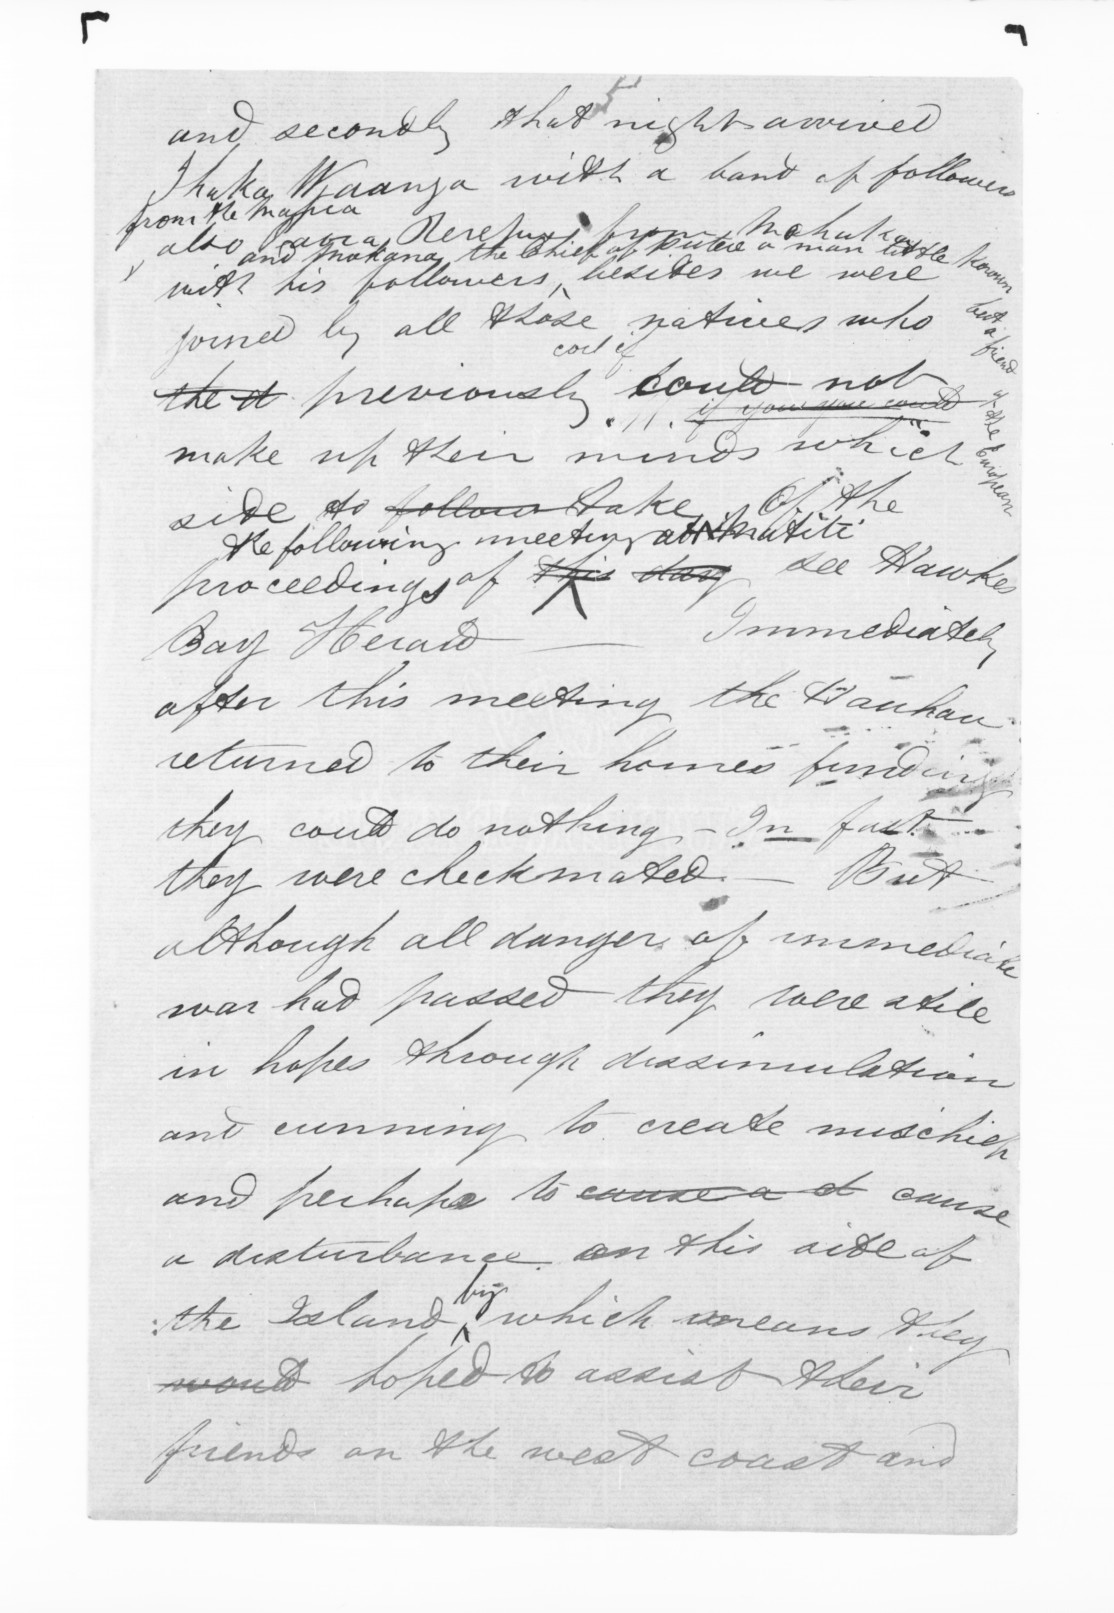 and secondly that night arrived
Ihaka Whaanga with a band of followers
from the Mahia
also Rerepu from Mohaka
and the Chief of Putere a man little known but a friend of the European
with his followers, besides we were
joined by all those natives who
the d previously could not
if you you could
make up their minds which
side to follow take Of the
the following meeting at Matiti
proceedings of this day see Hawkes
Bay Herald — Immediately
after this meeting the Hauhau
returned to their homes finding
they could do nothing – In fact
they were checkmated — But
although all danger of immediate
war had passed they were still
in hopes through dissimulation
and cunning to create mischief
and perhaps to cause a d cause
a disturbance on this side of
the Island by which means they
would hoped to assist their
friends on the west coast and